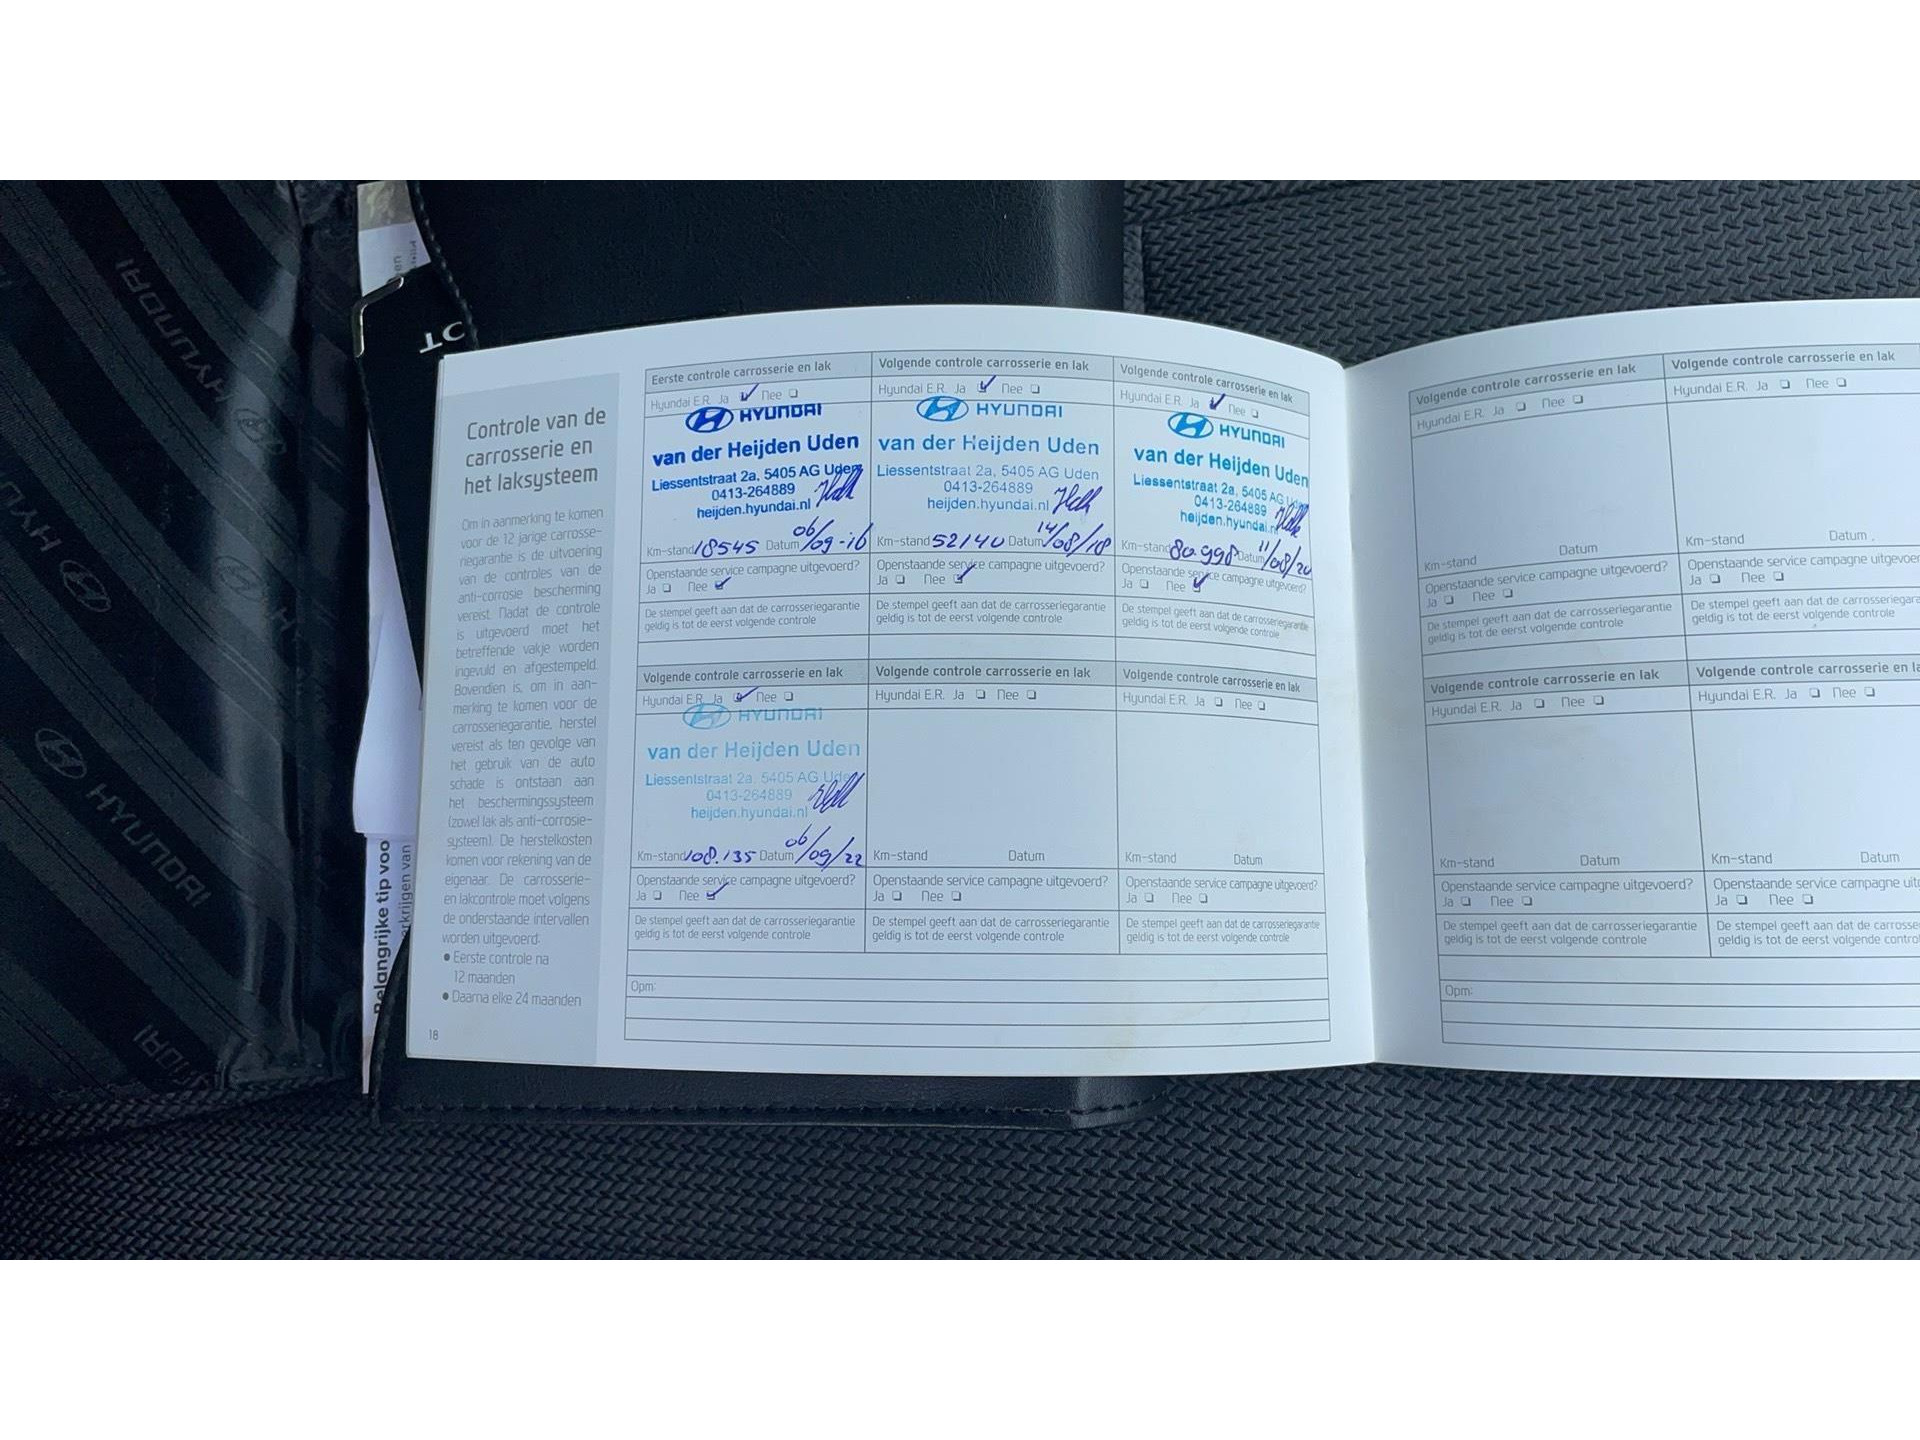 HYUNDAI
HYUNDAI
HYUNDAI
Belangrijke tip voo
erkrijgen van
Controle van de
carrosserie en
het laksysteem
Om in aanmerking te komen
voor de 12 jarige carrosse-
riegarantie is de uitvoering
van de controles van de
anti-corrosie bescherming
vereist. Nadat de controle
is uitgevoerd moet het
betreffende vakje worden
ingevuld en afgestempeld.
Bovendien is, om in aan-
merking te komen voor de
carrosseriegarantie, herstel
vereist als ten gevolge van
het gebruik van de auto
schade is ontstaan aan
het beschermingssysteem
(zowel lak als anti-corrosie-
systeem). De herstelkosten
komen voor rekening van de
eigenaar. De carrosserie-
en lakcontrole moet volgens
de onderstaande intervallen
worden uitgevoerd:
• Eerste controle na
12 maanden
• Daarna elke 24 maanden
18
Eerste controle carrosserie en lak
Hyundai E.R. Ja Nee
HYUNDAI
van der Heijden Uden
Liessentstraat 2a, 5405 AG Uden
0413-264889
heijden.hyundai.nl
Km-stand 18545 Datum 06/09-16
Openstaande service campagne uitgevoerd?
Ja Nee
De stempel geeft aan dat de carrosseriegarantie
geldig is tot de eerst volgende controle
Volgende controle carrosserie en lak
Hyundai E.R. Ja Nee
HYUNDAI
van der Heijden Uden
Liessentstraat 2a, 5405 AG Uden
0413-264889
heijden.hyundai.nl
Km-stand 52140 Datum 14/08/18
Openstaande service campagne uitgevoerd?
Ja Nee
De stempel geeft aan dat de carrosseriegarantie
geldig is tot de eerst volgende controle
Volgende controle carrosserie en lak
Hyundai E.R. Ja Nee
HYUNDAI
van der Heijden Uden
Liessentstraat 2a, 5405 AG Uden
0413-264889
heijden.hyundai.nl
Km-stand 80.998 Datum 11/08/20
Openstaande service campagne uitgevoerd?
Ja Nee
De stempel geeft aan dat de carrosseriegarantie
geldig is tot de eerst volgende controle
Volgende controle carrosserie en lak
Hyundai E.R. Ja Nee
HYUNDAI
van der Heijden Uden
Liessentstraat 2a, 5405 AG Uden
0413-264889
heijden.hyundai.nl
Km-stand 108.135 Datum 06/09/22
Openstaande service campagne uitgevoerd?
Ja Nee
De stempel geeft aan dat de carrosseriegarantie
geldig is tot de eerst volgende controle
Volgende controle carrosserie en lak
Hyundai E.R. Ja Nee
Km-stand Datum
Openstaande service campagne uitgevoerd?
Ja Nee
De stempel geeft aan dat de carrosseriegarantie
geldig is tot de eerst volgende controle
Volgende controle carrosserie en lak
Hyundai E.R. Ja Nee
Km-stand Datum
Openstaande service campagne uitgevoerd?
Ja Nee
De stempel geeft aan dat de carrosseriegarantie
geldig is tot de eerst volgende controle
Opm:
Volgende controle carrosserie en lak
Hyundai E.R. Ja Nee
Km-stand Datum
Openstaande service campagne uitgevoerd?
Ja Nee
De stempel geeft aan dat de carrosseriegarantie
geldig is tot de eerst volgende controle
Volgende controle carrosserie en lak
Hyundai E.R. Ja Nee
Km-stand Datum
Openstaande service campagne uitgevoer
Ja Nee
De stempel geeft aan dat de carrosseriegara
geldig is tot de eerst volgende controle
Volgende controle carrosserie en lak
Hyundai E.R. Ja Nee
Km-stand Datum
Openstaande service campagne uitgevoerd?
Ja Nee
De stempel geeft aan dat de carrosseriegarantie
geldig is tot de eerst volgende controle
Volgende controle carrosserie en la
Hyundai E.R. Ja Nee
Km-stand Datum
Openstaande service campagne uitg
Ja Nee
De stempel geeft aan dat de carrosse
geldig is tot de eerst volgende contro
Opm: